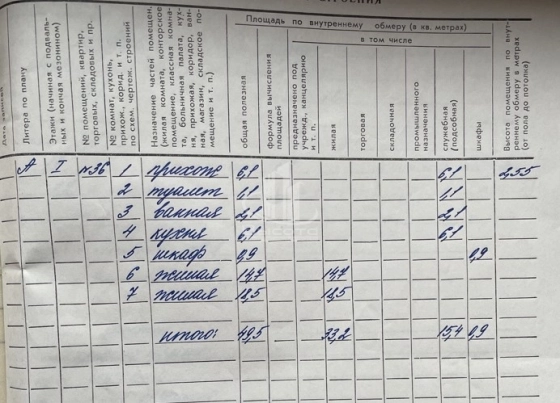 Площадь по внутреннему обмеру (в кв. метрах)
в том числе
Литера по плану
Этажи (начиная с подвальных и кончая мезонином)
№ помещений, квартир, торговых, складовых и пр.
№ комнат, кухонь, прихож., корид. и т. п. по схем. чертеж. строений
Назначение частей помещен.
(жилая комната, конторское
помещение, классная комната, больничная палата, кухня, прихожая, коридор, ванная, магазин, складское помещение и т. п.)
общая полезная
формула вычисления площадей
предназначено под учрежд., канцелярию и т. п.
жилая
торговая
складочная
промышленного назначения
служебная (подсобная)
шкафы
Высота помещения по внутреннему обмеру в метрах (от пола до потолка)
А I №36 1 прихож 6,1 6,1 2,55
2 туалет 1,1 1,1
3 ванная 2,1 2,1
4 кухня 6,1 6,1
5 шкаф 0,9 0,9
6 жилая 14,7 14,7
7 жилая 18,5 18,5
итого: 49,5 33,2 15,4 0,9